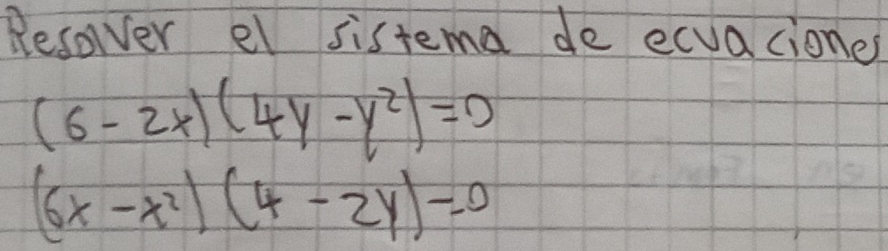 Resolver el sistema de ecuaciones
(6-2x)(4y-y²)=0
(6x-x²)(4-2y)=0